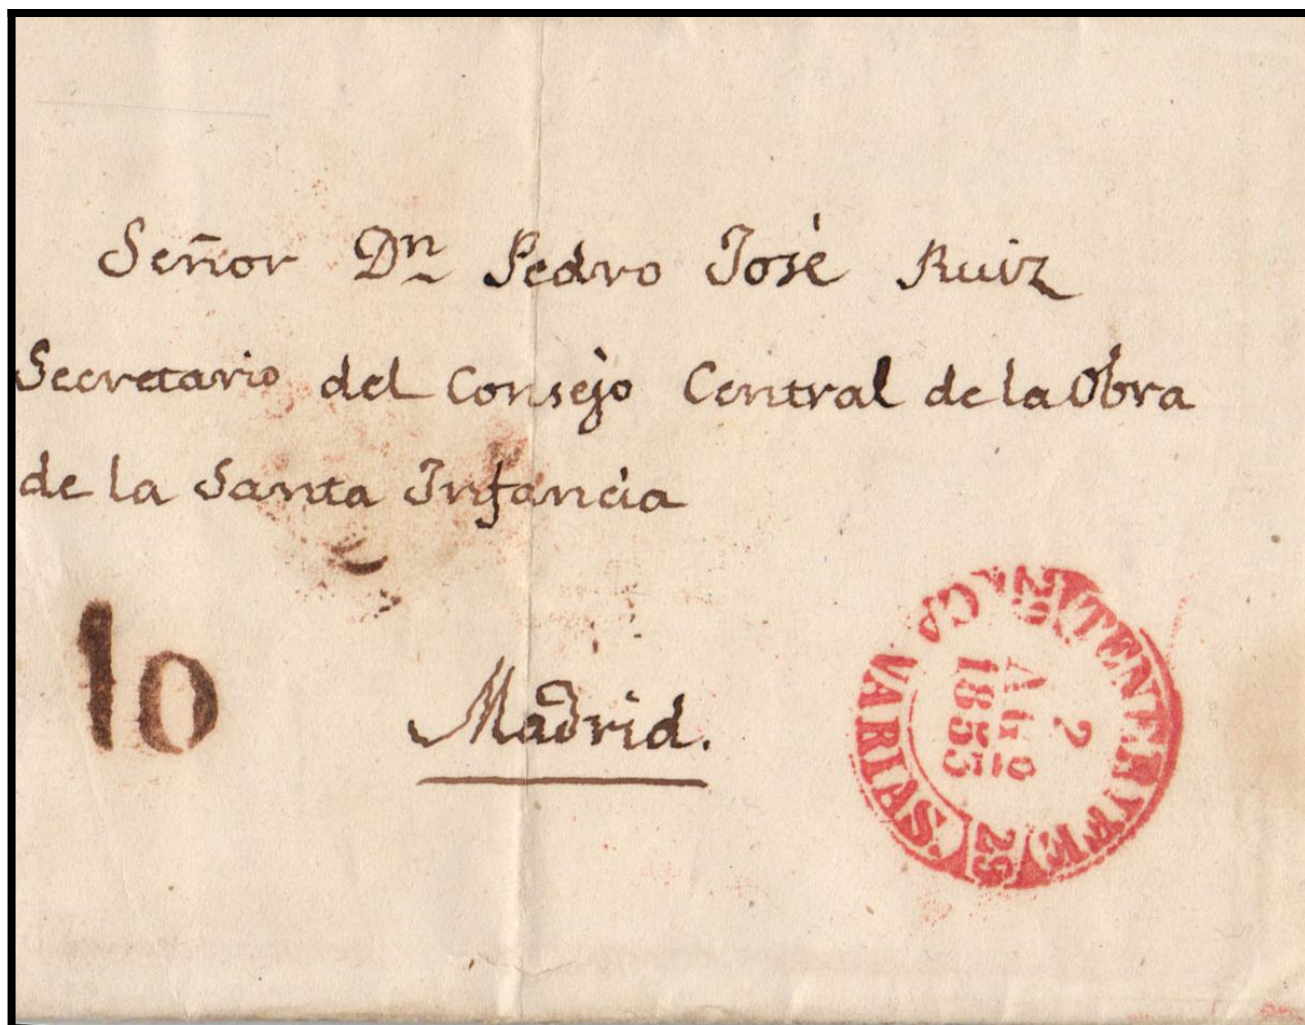 Señor Dn Pedro José Ruiz
Secretario del Consejo Central de la Obra
de la Santa Infancia
10
Madrid.
TENERIFE
2
AGTO
1853
CANARIAS.
29